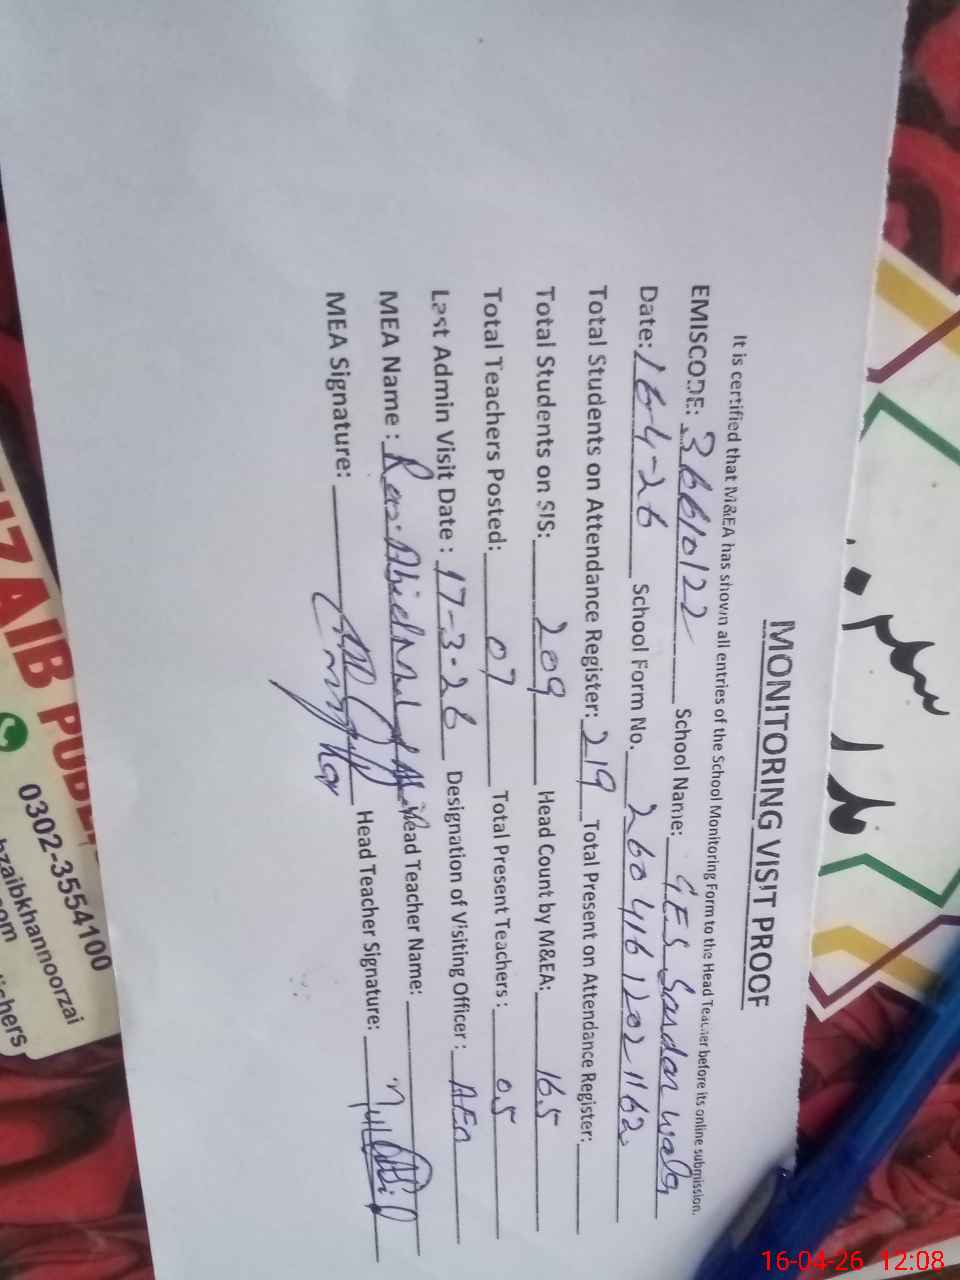 MONITORING VISIT PROOF
It is certified that M&EA has shown all entries of the School Monitoring Form to the Head Teacher before its online submission.
EMISCODE: 36610122 School Name: GES Sardar wala
Date: 16-4-26 School Form No. 26041612021162
Total Students on Attendance Register: 219 Total Present on Attendance Register:
Total Students on SIS: 209 Head Count by M&EA: 165
Total Teachers Posted: 07 Total Present Teachers: 05
Last Admin Visit Date: 17-3-26 Designation of Visiting Officer: AEO
MEA Name: Head Teacher Name:
MEA Signature: Head Teacher Signature:
0302-3554100
bzaibkhannoorzai
16-04-26 12:08